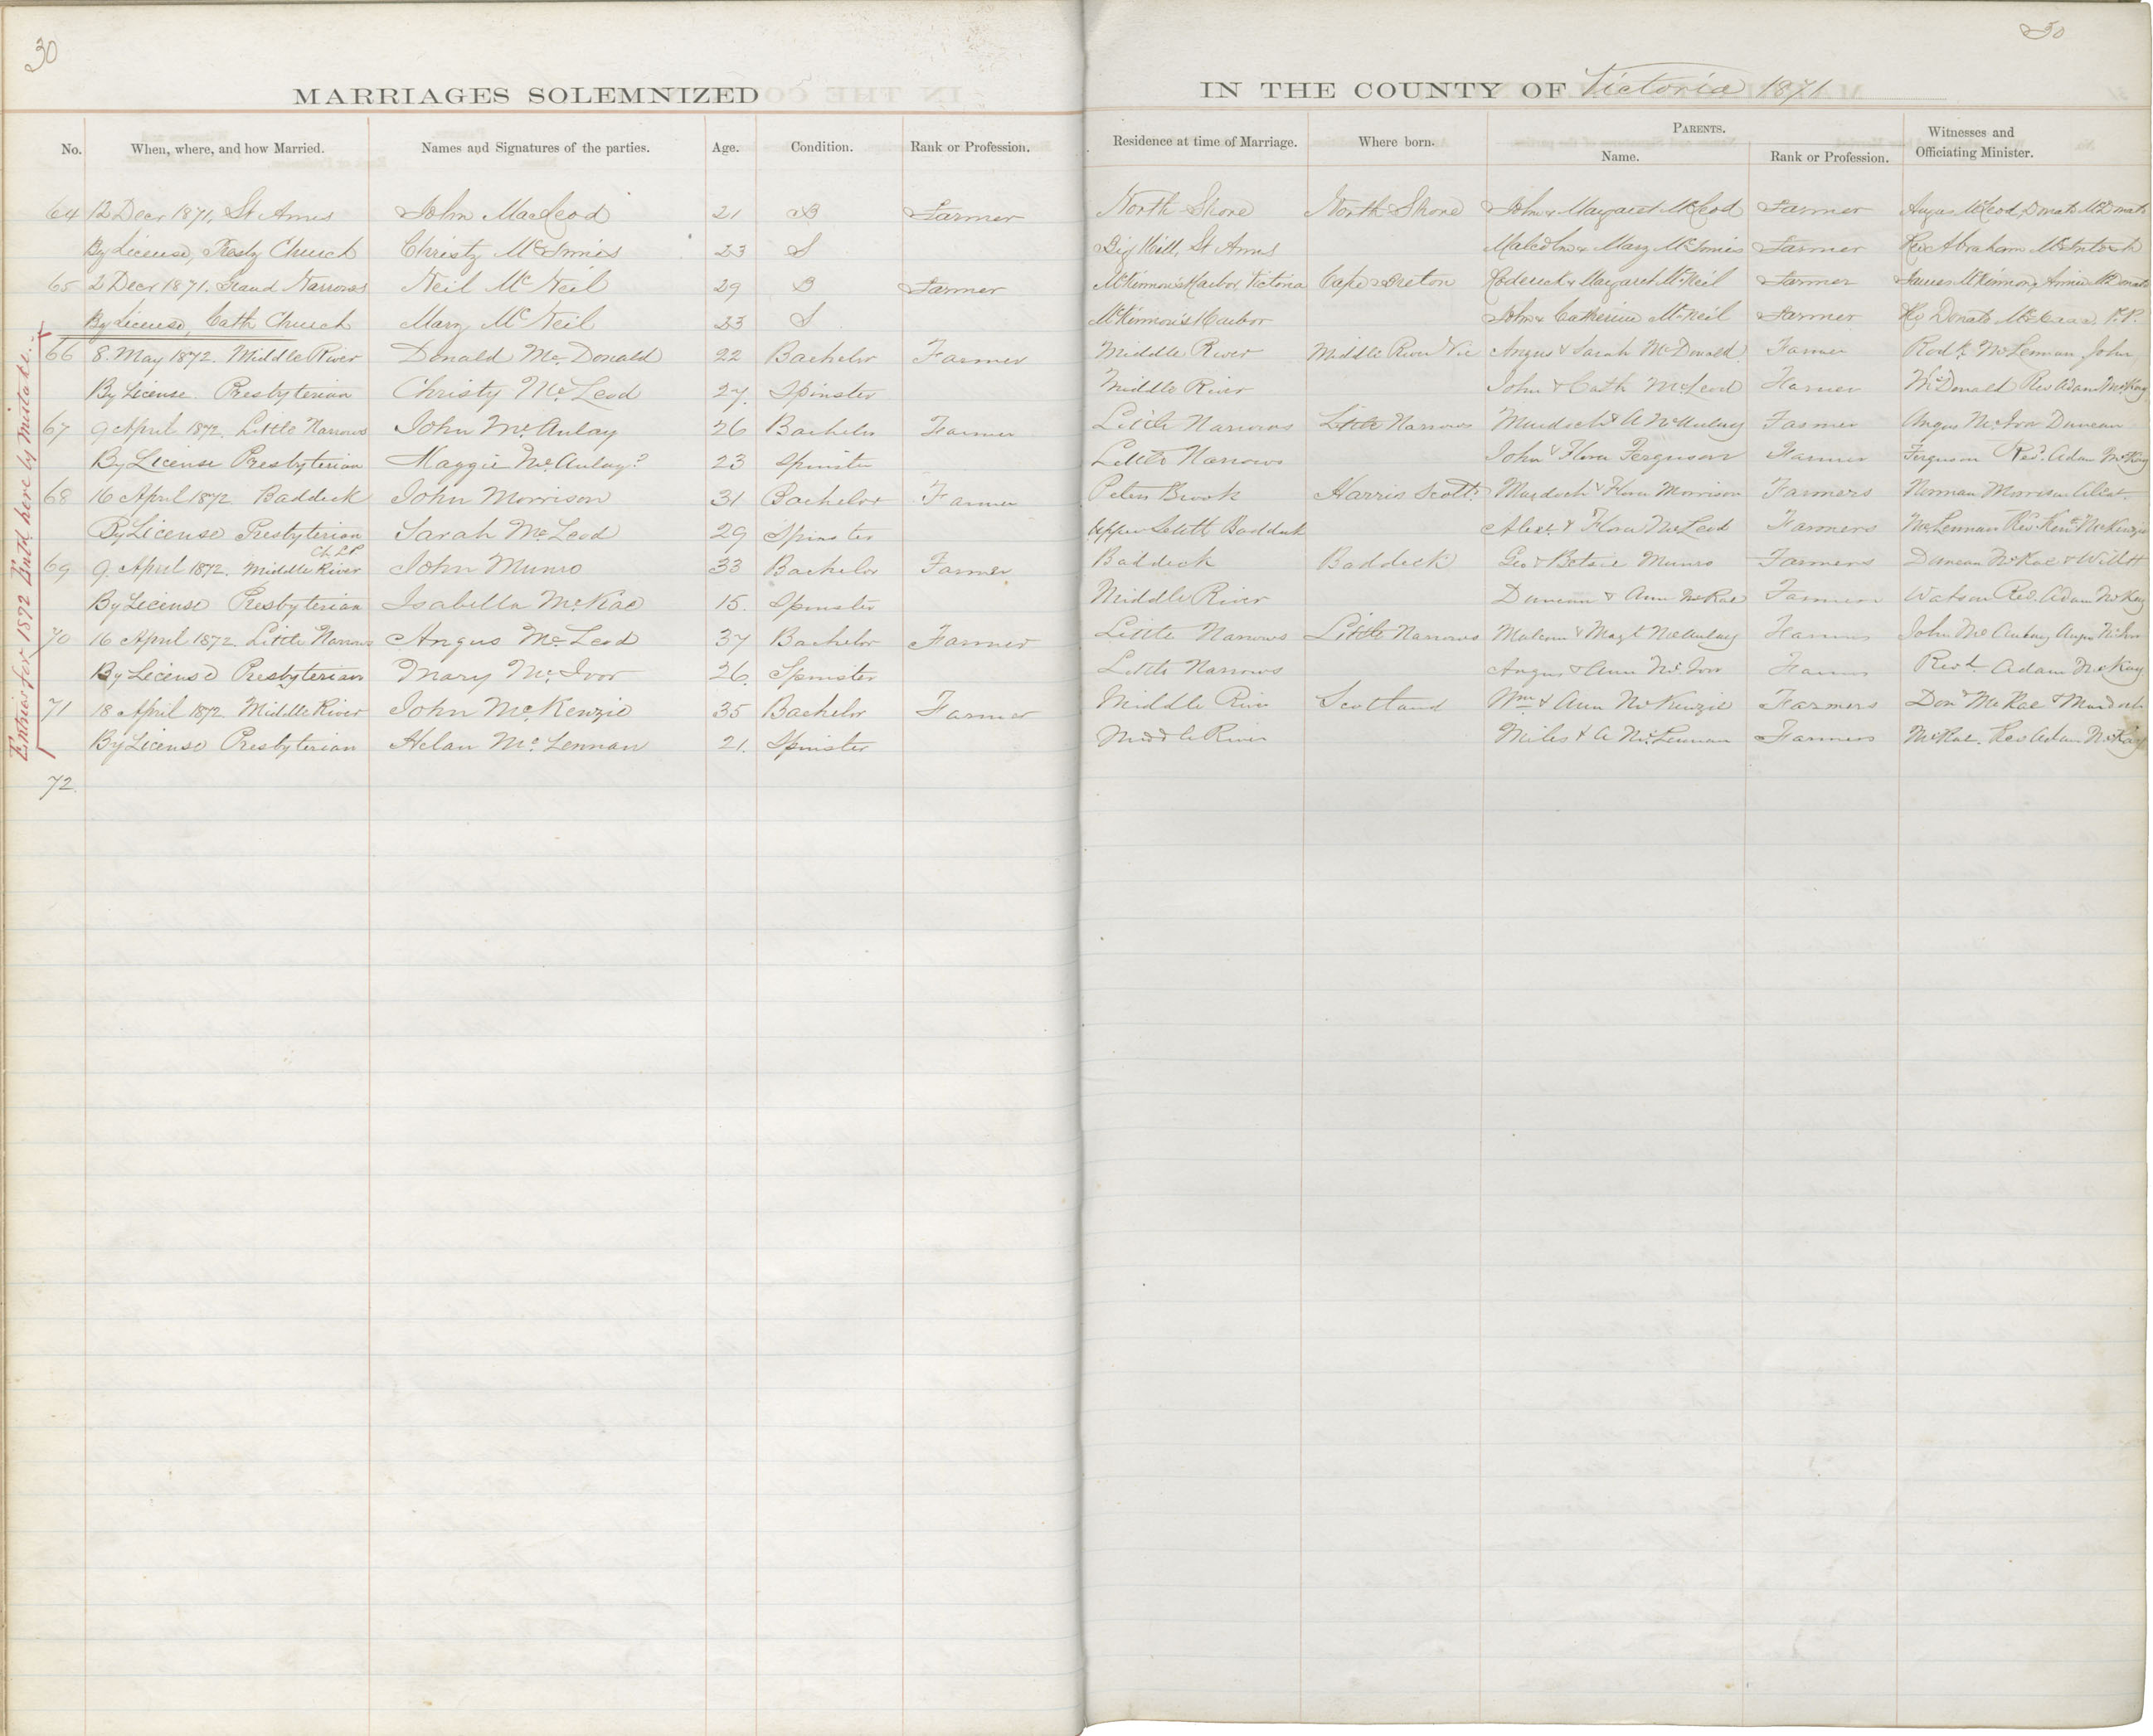 30
30
MARRIAGES SOLEMNIZED IN THE COUNTY OF Victoria 1871
PARENTS.
No. When, where, and how Married. Names and Signatures of the parties. Age. Condition. Rank or Profession. Residence at time of Marriage. Where born. Name. Rank or Profession. Witnesses and Officiating Minister.
64 12 Decr 1871, St Anns John MacLeod 21 B Farmer North Shore North Shore John & Margaret McLeod Farmer Angus McLeod, Donald McDonald
By License, Presby Church Christy McInnis 23 S Big Hill, St Anns Malcolm & Mary McInnis Farmer Rev Abraham McIntosh
65 2 Decr 1871, Grand Narrows Neil McNeil 29 B Farmer McKinnon's Harbor Victoria Cape Breton Roderick & Margaret McNeil Farmer James McKinnon, Annie McDonald
By License, Cath Church Mary McNeil 23 S McKinnon's Harbor John & Catherine McNeil Farmer Donald P.P.
66 8 May 1872. Middle River Donald McDonald 22 Bachelor Farmer Middle River Middle River Vic Angus & Sarah McDonald Farmer Rodk McLennan John
By License Presbyterian Christy McLeod 27. Spinster Middle River John & Cath McLeod Farmer McDonald Rev Adam McKay
67 9 April 1872. Little Narrows John McAulay 26 Bachelor Farmer Little Narrows Little Narrows Murdoch & A McAulay Farmer Angus McIvor Duncan
By License Presbyterian Maggie McAulay? 23 Spinster Little Narrows John & Flora Ferguson Farmer Ferguson Revd. Adam McKay
68 16 April 1872 Baddeck John Morrison 31 Bachelor Farmer Peters Brook Harris Scotd Murdoch & Flora Morrison Farmers Norman Morrison Alexr.
By License Presbyterian Sarah McLeod 29 Spinster Upper Settlt Baddeck Alexr & Flora McLeod Farmers McLennan Rev. Kenh McKenzie
Ch. LP
69 9. April 1872. Middle River John Munro 33 Bachelor Farmer Baddeck Baddeck Geo & Betsie Munro Farmers Duncan McRae & Willm
By License Presbyterian Isabella McRae 15. Spinster Middle River Duncan & Ann McRae Farmers Watson Rev. Adam McKay
70 16 April 1872 Little Narrows Angus McLeod 37 Bachelor Farmer Little Narrows Little Narrows Malcom & Magt McAulay Farmers John McAulay Angus McIvor
By License Presbyterian Mary McIvor 26. Spinster Little Narrows Angus & Ann McIvor Farmers Revd. Adam McKay
71 18 April 1872 Middle River John McKenzie 35 Bachelor Farmer Middle River Scotland Wm & Ann McKenzie Farmers Dond McRae & Murdoch
By License Presbyterian Helan McLennan 21. Spinster Middle River Miles & A McLennan Farmers McRae. Rev Adam McKay
72.
Entries for 1872 Entd here by mistake.